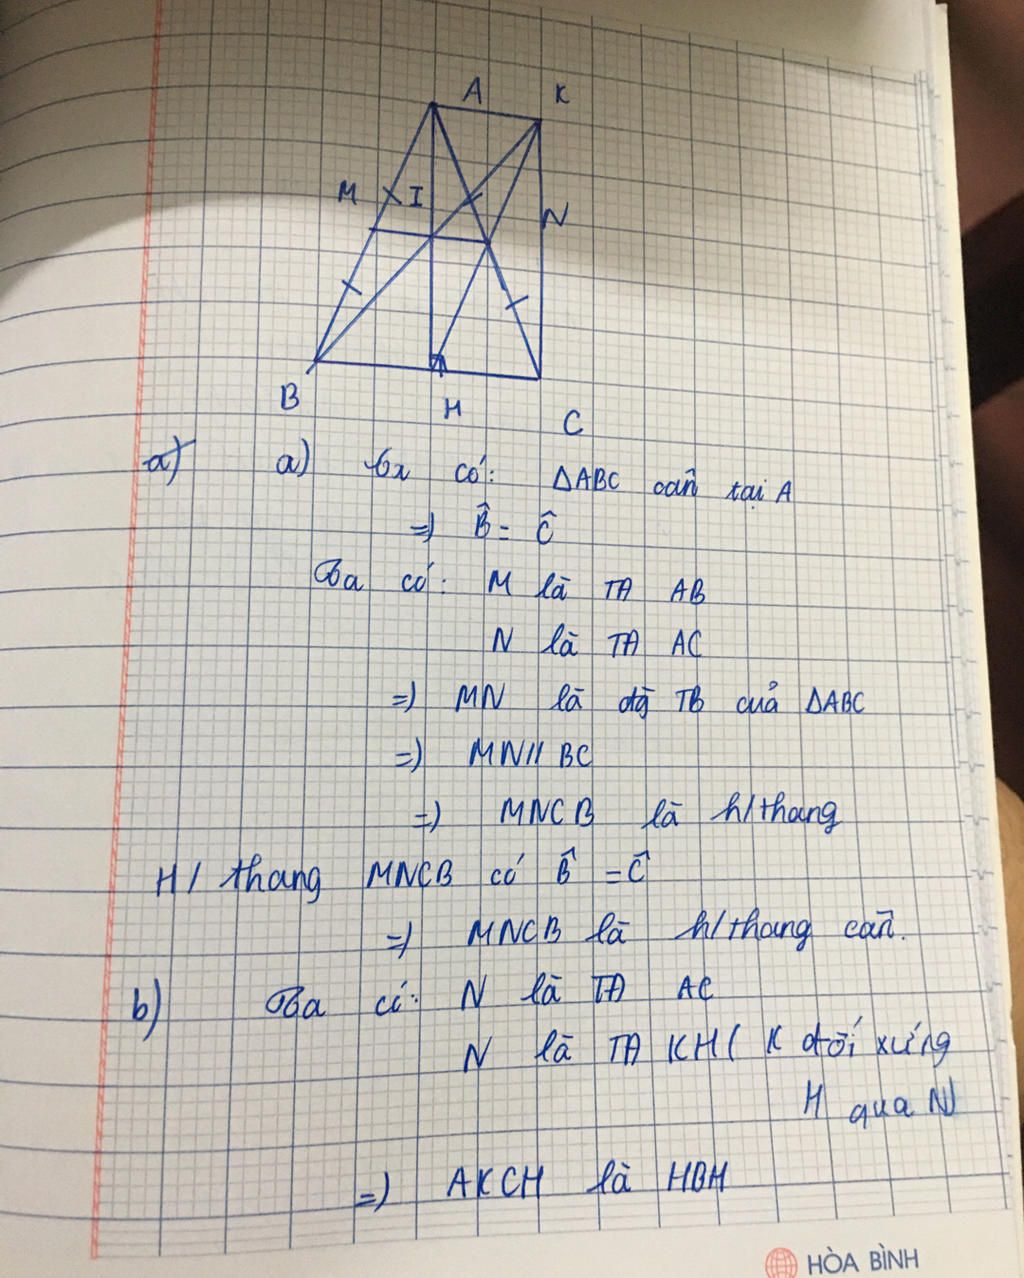 A K
M I N
B H C
a) a) Ta có: ΔABC cân tại A
=) B̂ = Ĉ
Ta có: M là TĐ AB
N là TĐ AC
=) MN là đg TB của ΔABC
=) MN// BC
=) MNCB là h/thang
H/ thang MNCB có B̂ = Ĉ
=) MNCB là h/thang cân.
b) Ta có: N là TĐ AC
N là TĐ KH ( K đối xứng
H qua N)
=) AKCH là HBH
HÒA BÌNH